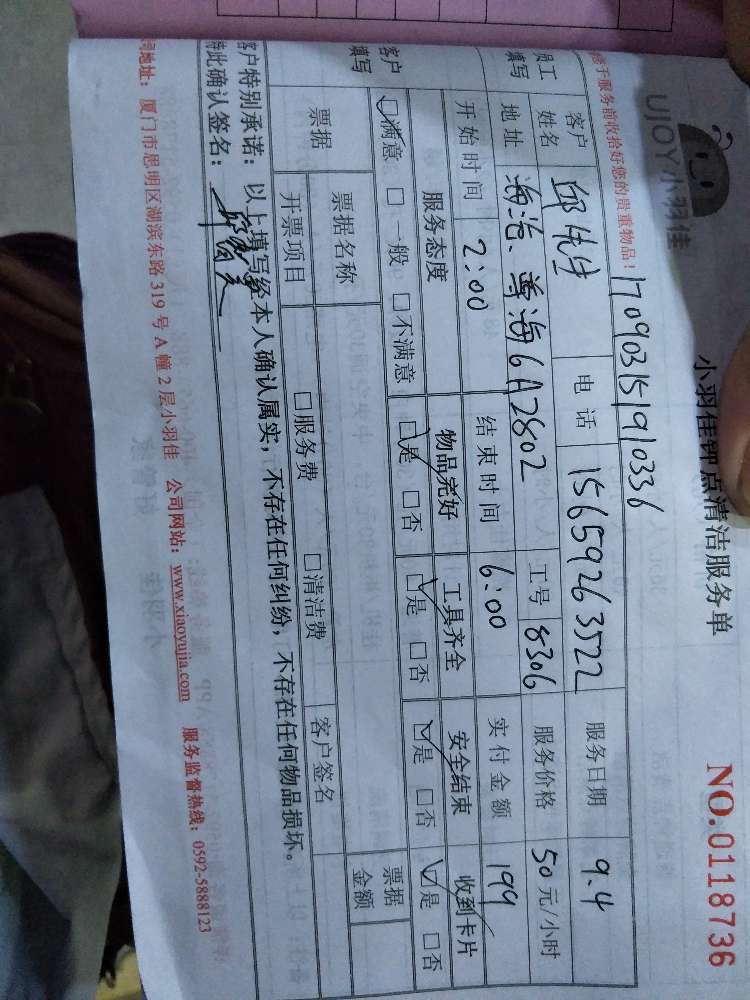 UJOY小羽佳
小羽佳钟点清洁服务单
NO.0118736
于服务前收拾好您的贵重物品!
1709031519 10336
员工填写
客户姓名 邱先生 电话 15659263522 服务日期 9.4
地址 海沧、尊海6A2802 工号 8306 服务价格 50元/小时
开始时间 2:00 结束时间 6:00 实付金额 199
客户填写
服务态度 物品完好 工具齐全 安全结束 收到卡片
☑满意 □一般 □不满意 ☑是 □否 ☑是 □否 ☑是 □否 ☑是 □否
票据 票据名称 客户签名 票据金额
开票项目 □服务费 □清洁费
客户特别承诺:以上填写经本人确认属实,不存在任何纠纷,不存在任何物品损坏。
特此确认签名:
司地址:厦门市思明区湖滨东路319号A幢2层小羽佳 公司网站:www.xiaoyujia.com 服务监督热线:0592-5888123